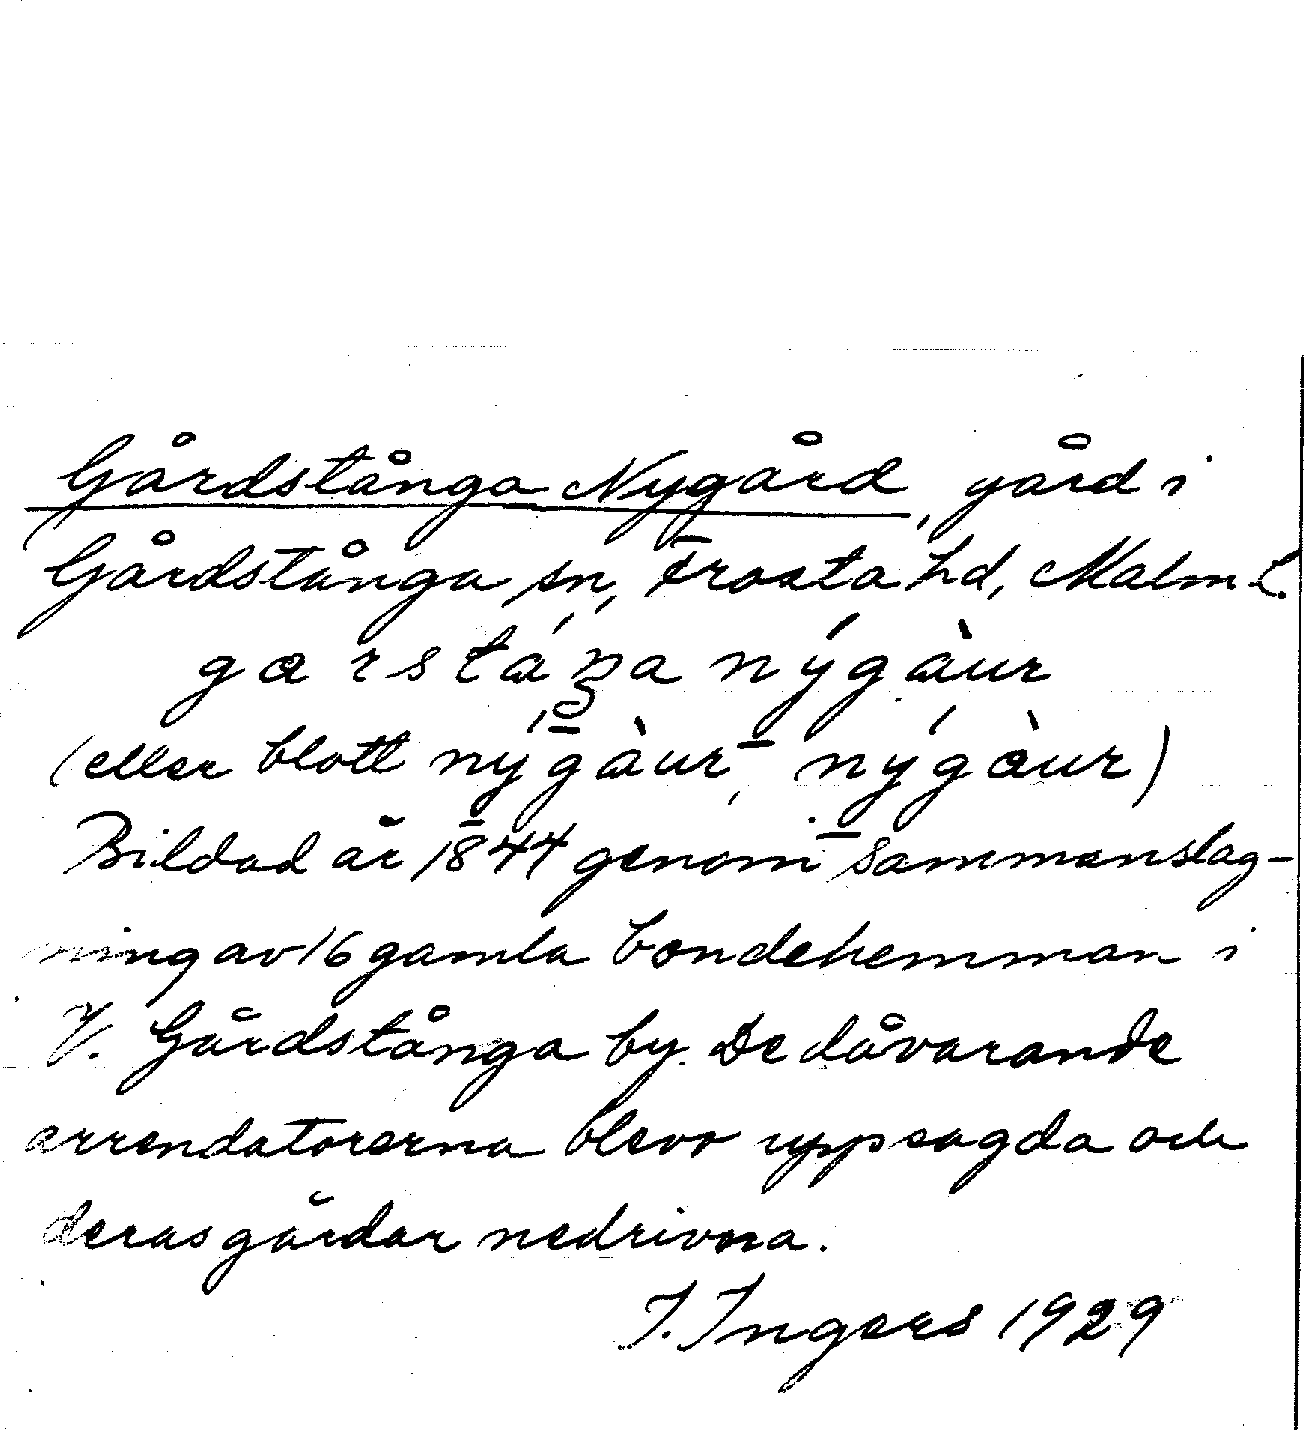 Gårdstånga Nygård, gård i
Gårdstånga sn, Frosta hd, Malm L.
garstáŋa nýgàur
(eller blott nýgàur, nýgàur)
Bildad år 1844 genom sammanslag-
ning av 16 gamla bondehemman i
V. Gårdstånga by. De dåvarande
arrendatorerna blevo uppsagda och
deras gårdar nedrivna.
I. Ingers 1929